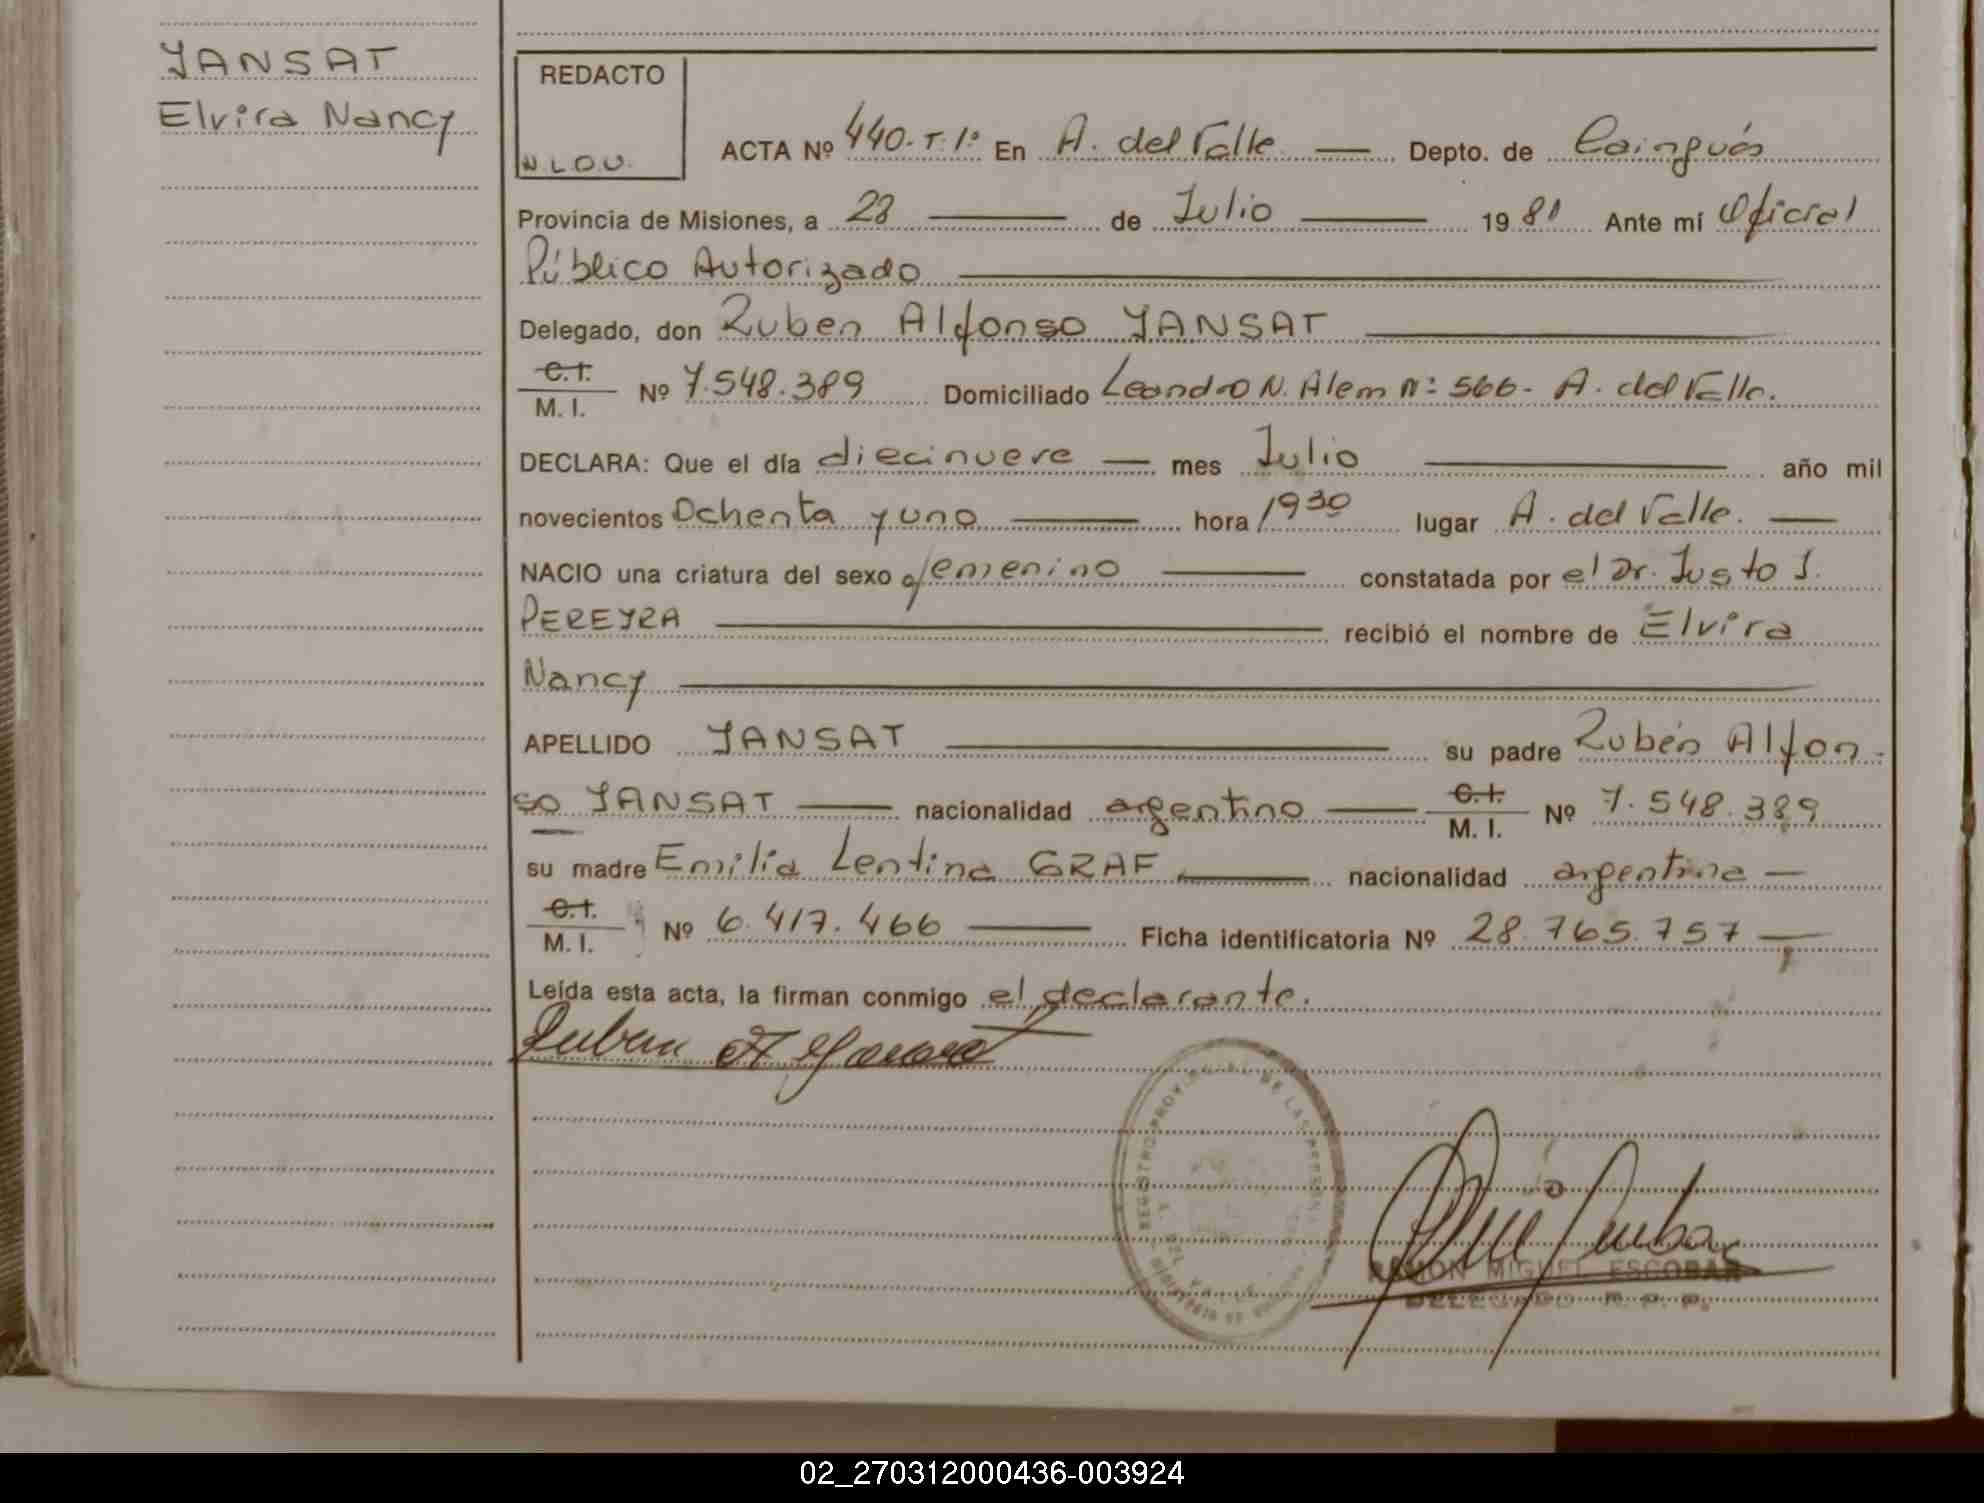 YANSAT
Elvira Nancy
REDACTO
N.L.O.U.
ACTA Nº 440-T.1º En A. del Valle Depto. de Cainguás
Provincia de Misiones, a 28 de Julio 1981 Ante mí Oficial
Público Autorizado
Delegado, don Ruben Alfonso YANSAT
C.I.
M. I. Nº 7.548.389 Domiciliado Leandro N. Alem nº 566- A. del Valle.
DECLARA: Que el día diecinueve mes Julio año mil
novecientos Ochenta y uno hora 1930 lugar A. del Valle.
NACIO una criatura del sexo femenino constatada por el Dr. Justo J.
PEREYRA recibió el nombre de Elvira
Nancy
APELLIDO YANSAT su padre Rubén Alfon-
so YANSAT nacionalidad argentino C.I. M. I. Nº 7.548.389
su madre Emilia Lentina GRAF nacionalidad argentina
C.I.
M. I. Nº 6.417.466 Ficha identificatoria Nº 28.765.757
Leída esta acta, la firman conmigo el declarante.
Ruben A Yansat
REGISTRO PROVINCIAL DE LAS PERSONAS
A. DEL VALLE
RAMON MIGUEL ESCOBAR
DELEGADO R. P. P.
02_270312000436-003924